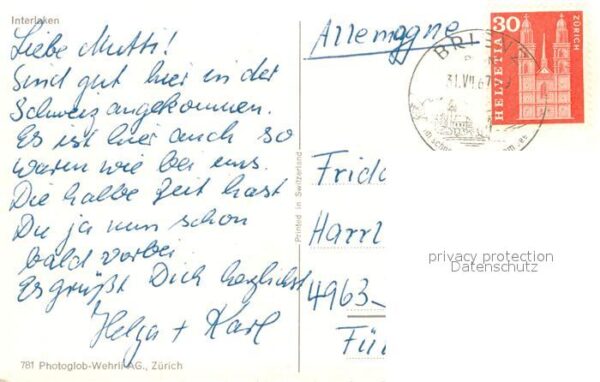 Interlaken
Liebe Mutti!
Sind gut hier in der
Schweiz angekommen.
Es ist hier auch so
warm wie bei uns.
Die halbe Zeit hast
Du ja nun schon
bald vorbei.
Es grüßt Dich herzlichst
Helga + Karl
781 Photoglob-Wehrli AG., Zürich
Printed in Switzerland
Allemagne
BRIENZ
31.VII.67
30
HELVETIA
ZÜRICH
Frid
Harrl
4963-
Fü
privacy protection
Datenschutz